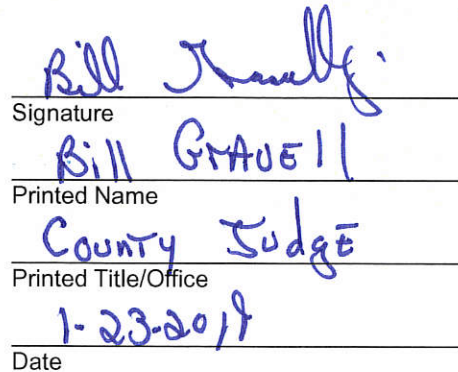 Bill
Signature
Bill GrAvEll
Printed Name
County JudgE
Printed Title/Office
1-23-2019
Date